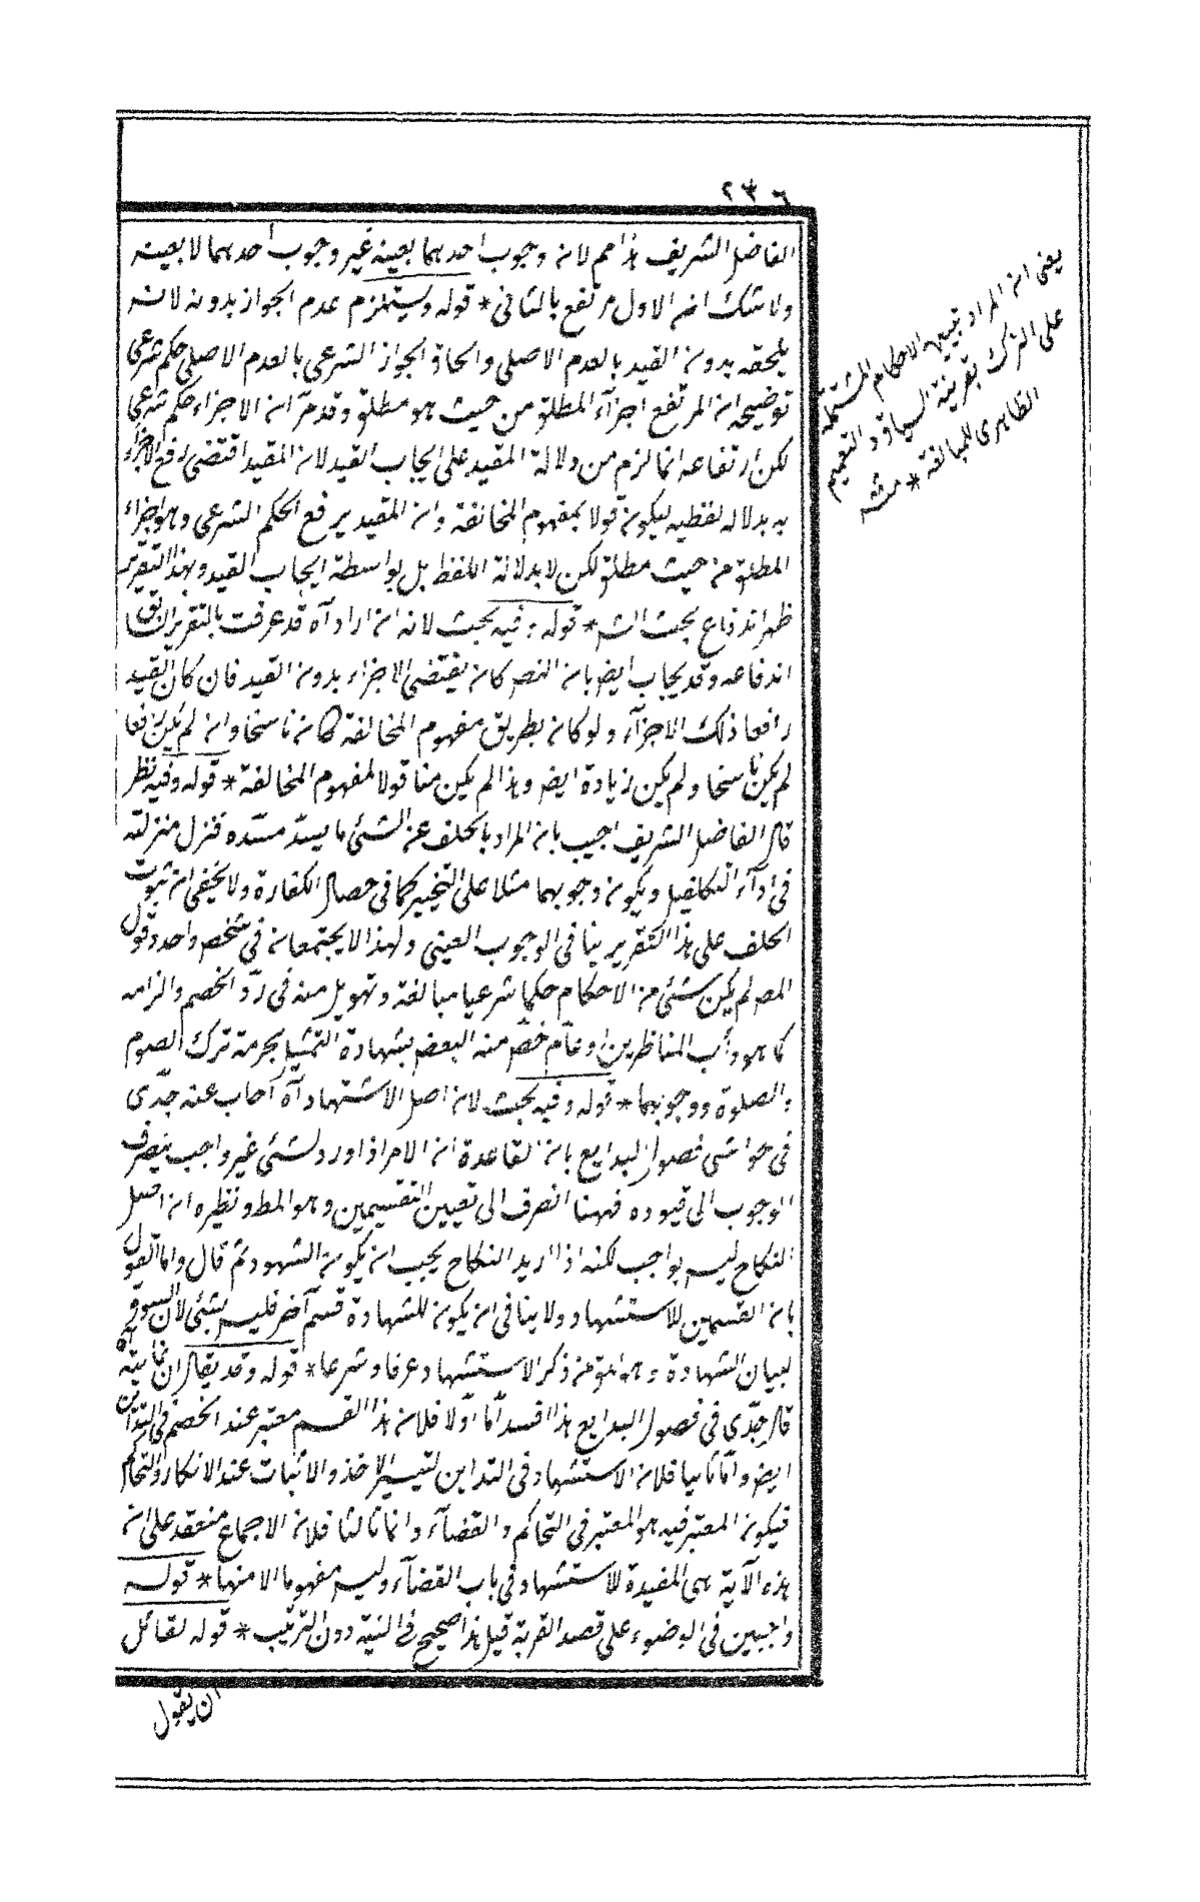 ٢٣٦
الفاضل الشريف هذا مم لان وجوب احدهما بعينه غير وجوب احدهما لا بعينه
ولا شك ان الاول مرتفع بالثانى * قوله ويستلزم عدم الجواز بدونه لانه
يلحقه بدون القيد بالعدم الاصلى والحاق الجواز الشرعى بالعدم الاصلى حكم شرعى
توضيحه ان المرتفع اجزآء المطلق من حيث هو مطلق وقد مر ان الاجزاء حكم شرعى
لكن ارتفاعه انما لزم من دلالة المقيد على ايجاب القيد لان المقيد اقتضى رفع الاجزاء
به بدلاله لفظيه ليكون قولا بمفهوم المخالفة وان المقيد يرفع الحكم الشرعى وهو اجزاء
المطلق من حيث مطلق لكن لا بدلالة اللفظ بل بواسطة ايجاب القيد وبهذا التقرير
ظهر اندفاع بحث الشه * قوله وفيه بحث لانه ان اراد آه قد عرفت بالتقرير السابق
اندفاعه وقد يجاب ايض بان النص كان يقتضى الاجزاء بدون القيد فان كان القيد
رافعا ذلك الاجزآء ولو كان بطريق مفهوم المخالفة كان ناسخا وان لم يكن رافعا
لم يكن ناسخا ولم يكن زيادة ايض وهذا لم يكن منا قولا لمفهوم المخالفة * قوله وفيه نظر
قال الفاضل الشريف اجيب بان المراد بالخلف عن الشئ ما يسد مسده فنزل منزلته
فى ادآء التكاليف ويكون وجوبهما مثلا على التخيير كما فى خصال الكفارة ولا يخفى ان ثبوت
الخلف على هذا التقرير ينافى الوجوب العينى ولهذا لا يجتمعان فى شخص واحد وقول
المص لم يكن شئ من الاحكام حكما شرعيا مبالغة وتهويل منه فى رد الخصم والزامه
كما هو دأب المناظرين او عام خص منه البعض بشهادة التمثيل بحرمة ترك الصوم
والصلوة ووجوبهما * قوله وفيه بحث لان اصل الاستشهاد آه اجاب عنه جدى
فى حواشى فصول البدايع بان القاعدة ان الامر اذا ورد لشئ غير واجب ينصرف
الوجوب الى قيوده فههنا انصرف الى تعيين التقسيمين وهو المط ونظيره ان اصل
النكاح ليس بواجب لكنه اذا اريد النكاح يجب ان يكون الشهود ثم قال واما القول
بان القسمين للاستشهاد ولا ينافى ان يكون للشهادة قسم آخر فليس بشئ لان السوق
لبيان الشهادة من ذكر الاستشهاد عرفا وشرعا * قوله وقد يقال ان
قال جدى فى فصول البدايع هذا افسد اما اولا فلان هذا القسم معتبر عند الخصم فى التداين
ايض واما ثانيا فلان الاستشهاد فى التداين لتيسير الاخذ والاثبات عند الانكار والتحاكم
فيكون المعتبر فيه هو المعتبر فى التحاكم والقضآء واما ثالثا فلان الاجماع منعقد على ان
هذه الآية هى المفيدة للاستشهاد فى باب القضآء وليس مفهوما الا منها * قوله
واجبين فى الوضوء على قصد القربة قيل هذا صحيح فى النية دون الترتيب * قوله لقائل
ان يقول
يعنى ان المراد تبيين الاحكام المشتملة
على الترك بقرينة السياق والتعميم
الظاهرى للمبالغة * منه